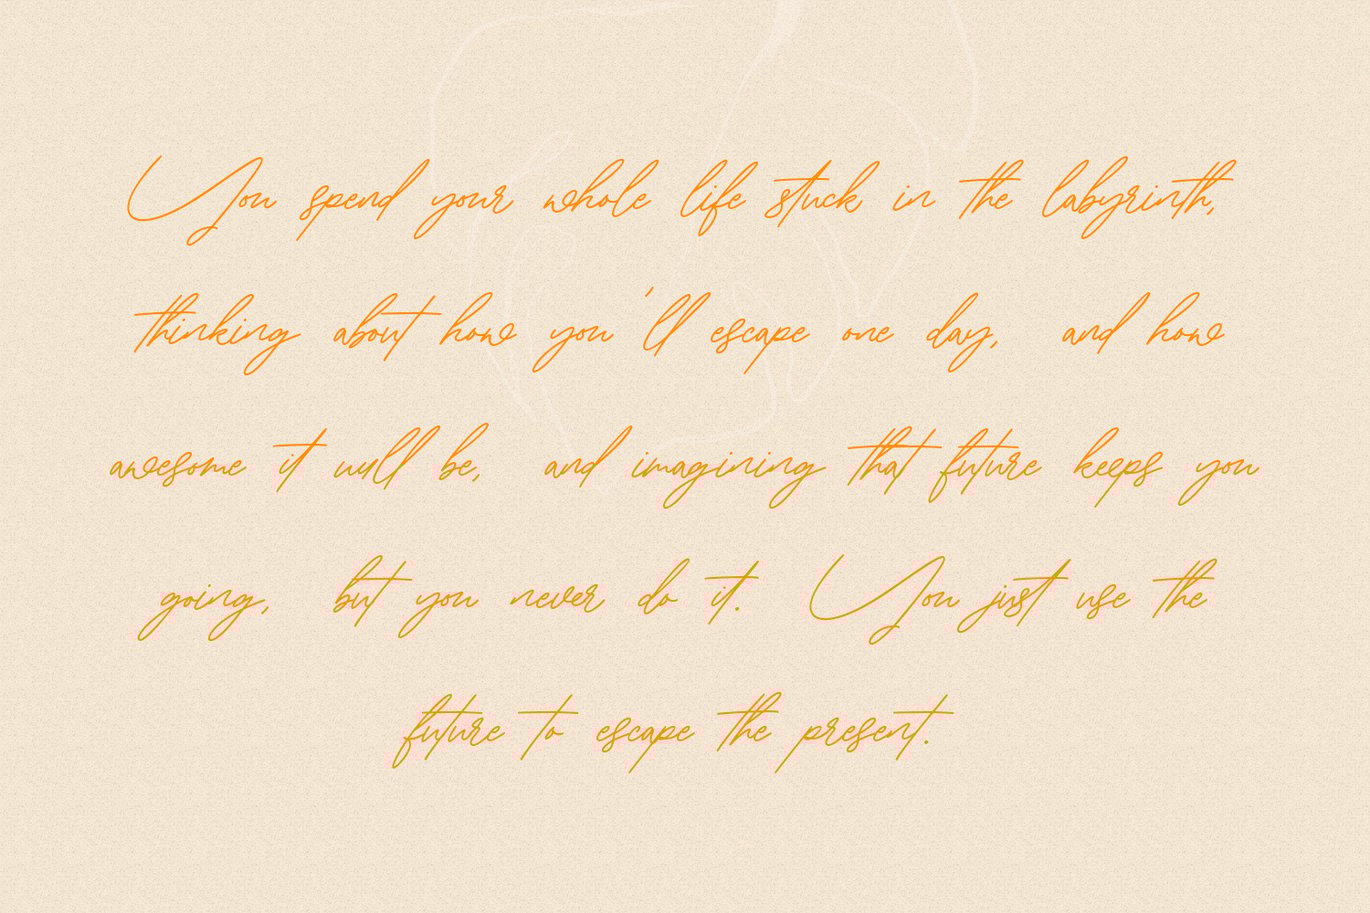 You spend your whole life stuck in the labyrinth,
thinking about how you'll escape one day, and how
awesome it will be, and imagining that future keeps you
going, but you never do it. You just use the
future to escape the present.